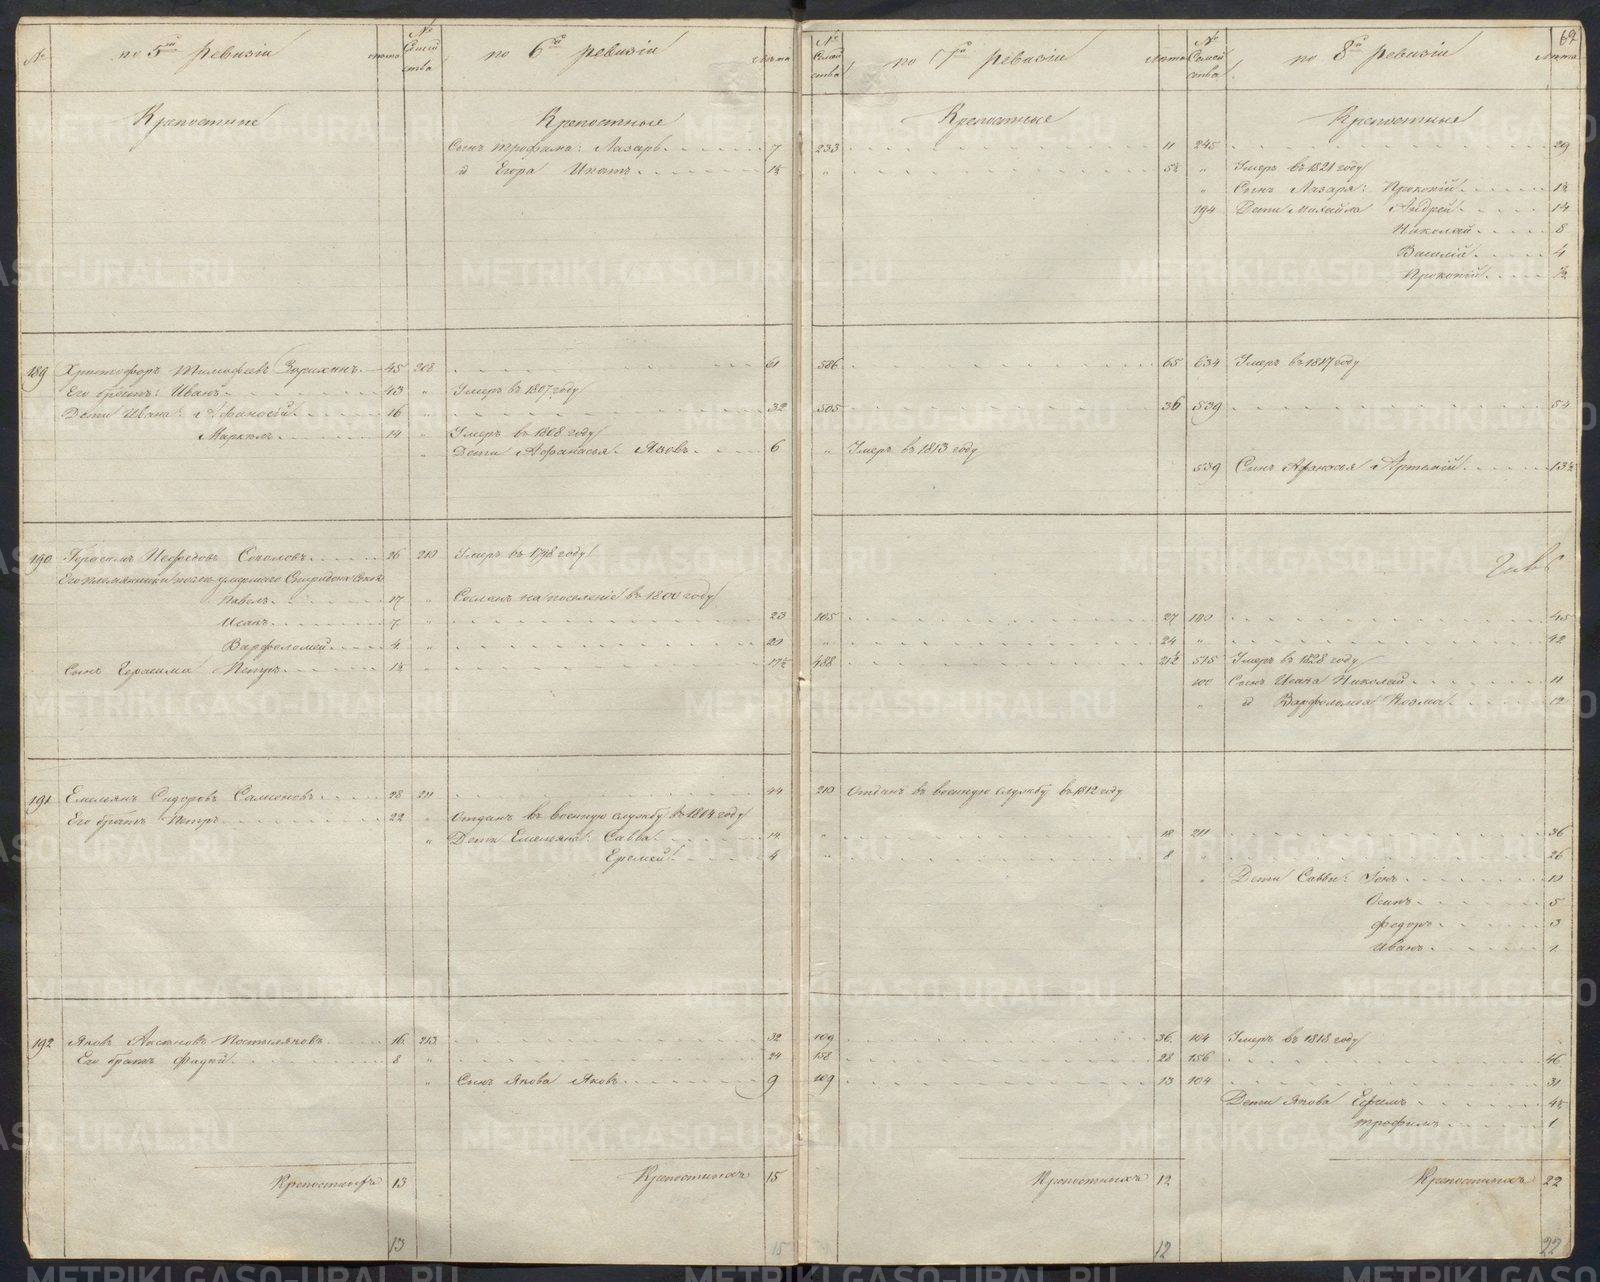 62
№ по 5й ревизіи лета № Семейства по 6й ревизіи Лета № Семейства по 7й ревизіи Лета № Семейства по 8й ревизіи Лета
Крепостные Крепостные Крепостные Крепостные
Сынъ Трофима: Лазарь 7 233 11 245 29
и Егора Игнатъ " " Умеръ въ 1821 году
" Сынъ Лазаря: Прокопій 1½
194 Дети Михайла Андрей 14
Николай 8
Василій 4
Прокопій ½
189 Христофоръ Тимофеевъ 45 208 61 506 65 634 Умеръ въ 1817 году
Его братъ: Иванъ 43 " Умеръ въ 1807 году
Дети Ивана: Афанасій 16 " 32 505 36 539 54
Маркелъ 14 " Умеръ въ 1808 году
" Дети Афанасья: Яковъ 6 " Умеръ въ 1813 году
539 Сынъ Афанасья Артемій 13½
190 Герасимъ Нефедовъ Соколовъ 26 210 Умеръ въ 1798 году
Его племянники после умершаго Спиридона
Павелъ 17 " Сосланъ на поселеніе въ 1800 году
Исакъ 7 " 23 105 27 100 45
Варфоломей 4 " 20 " 24 " 42
Сынъ Герасима Петръ 1½ " 17½ 488 21½ 515 Умеръ въ 1828 году
100 Сынъ Исака Николай 11
" и Варфоломея Козма 12
191 Емельянъ Сидоровъ Самсоновъ 28 211 44 210 Отданъ въ военную службу въ 1812 году
Его братъ Петръ 22 " Отданъ въ военную службу въ 1804 году
" Дети Емельяна: Савва 14 " 18 211 36
Еремей 4 " 8 " 26
" Дети Саввы: Іонъ 10
Осипъ 5
Федоръ 3
Иванъ 1
192 Яковъ Постыляковъ 16 213 32 109 36 104 Умеръ въ 1818 году
Его братъ Фадей 8 " 24 158 28 156 46
" Сынъ Якова Яковъ 9 109 13 104 31
Дети Якова Ефимъ 4½
Трофимъ 1
Крепостныхъ 13 Крепостныхъ 15 Крепостныхъ 12 Крепостныхъ 22
13 15 12 22
METRIKI.GASO-URAL.RU